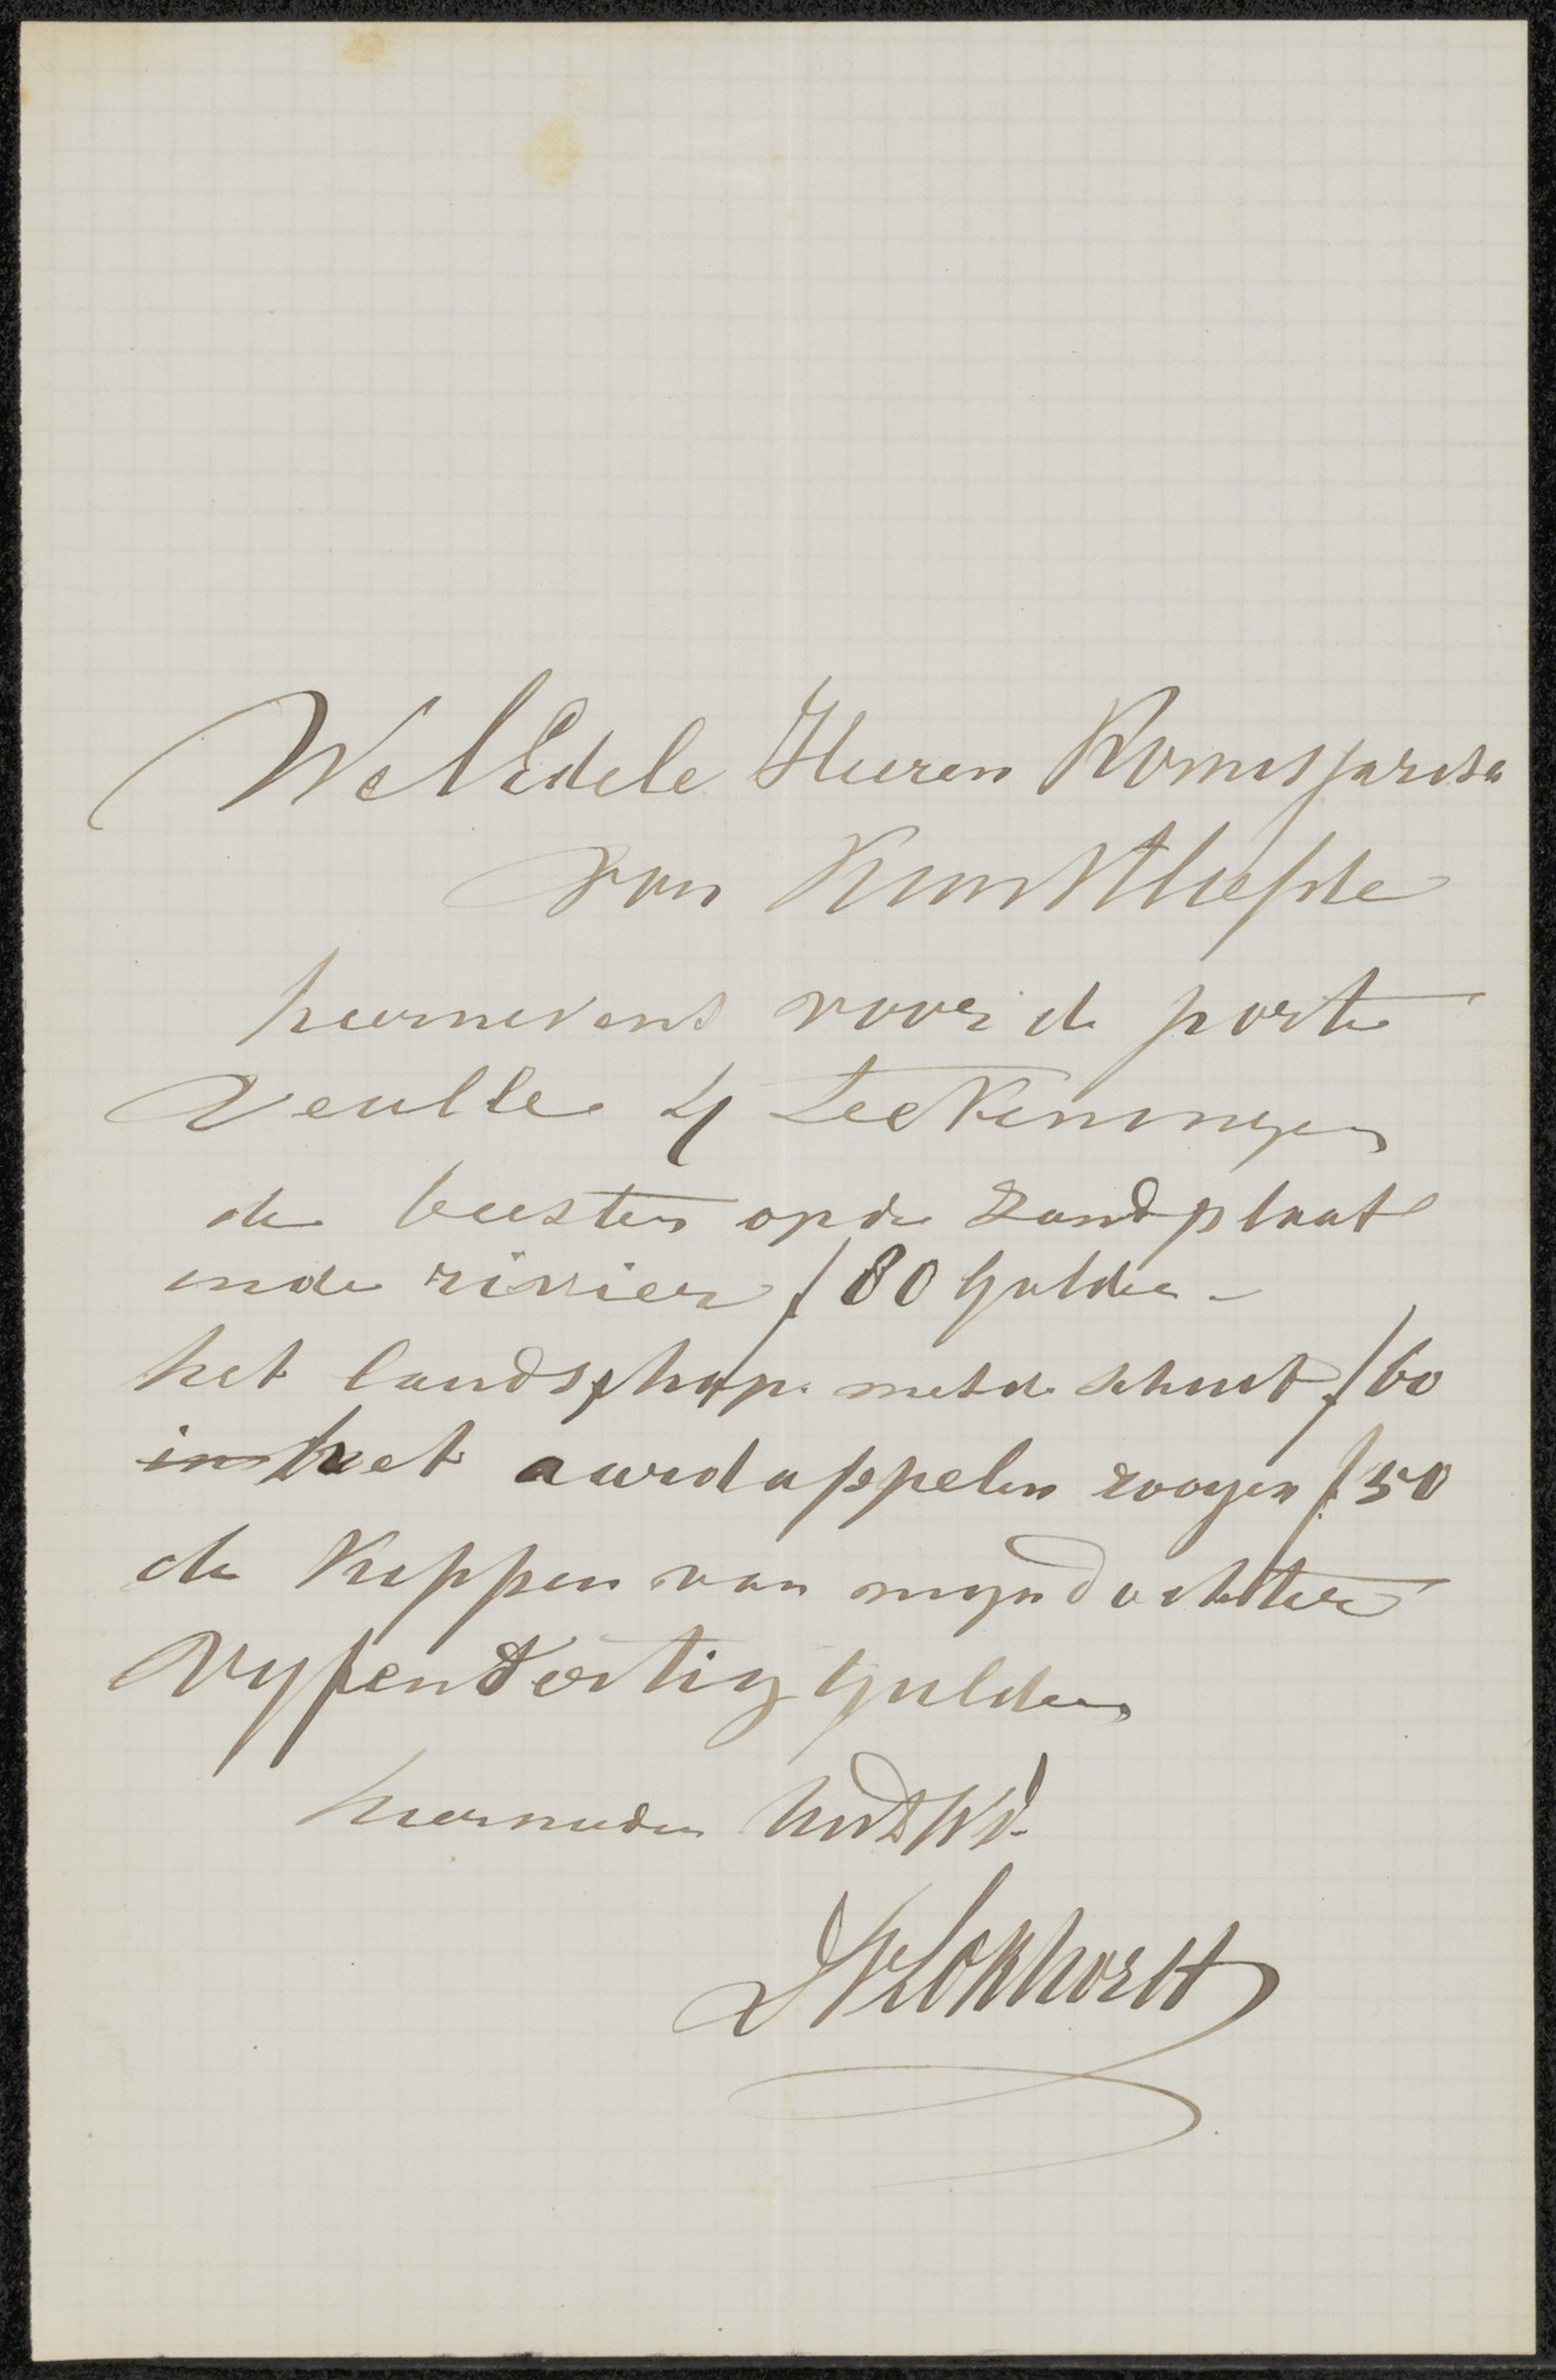 WelEdele Heeren Komisjarisa
van Kunstliefde
heernevens voor de porte
veulle 4 teekeningen
de beesten op de zandplaat
inde rivier f 80 Gulden -
het landschap met de schuit f 60
in het aardappelen rooyen f 50
de Kippen van myn dochter
Vyfendertig gulden
heermede UwdWd.
DVLokhorst